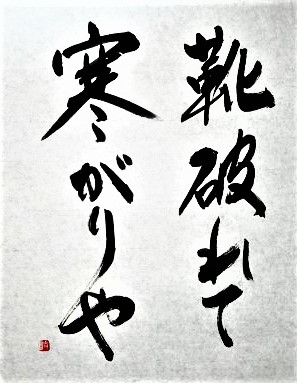 靴破れて
寒がりや